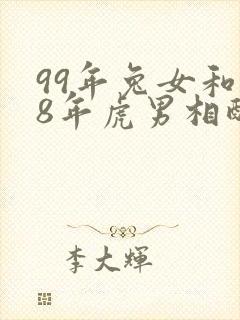 99年兔女和
8年虎男相
李大辉